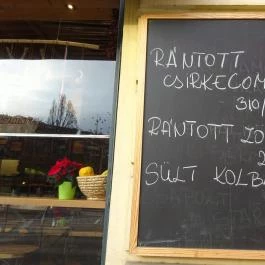 RÁNTOTT
CSIRKECOM
310
RÁNTOTT
SÜLT KOLB